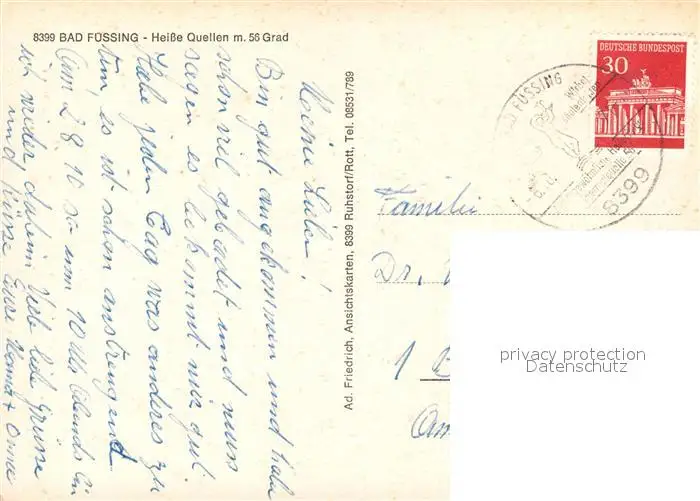 8399 BAD FÜSSING - Heiße Quellen m. 56 Grad
Meine Lieben!
Bin gut angekommen und habe
schon viel gebadet und muss
sagen es bekommt mir gut.
Habe jeden Tag was anderes zu
tun, es ist schon anstrengend
Am 28. 10 so um 10 Uhr Abends bin
ich wieder daheim Viele liebe Grüsse
und Küsse Eure Mama + Oma
Ad. Friedrich, Ansichtskarten, 8399 Ruhstorf/Rott, Tel. 08531/789
DEUTSCHE BUNDESPOST
30
BAD FÜSSING
8399
Familie
Dr.
1
privacy protection
Datenschutz